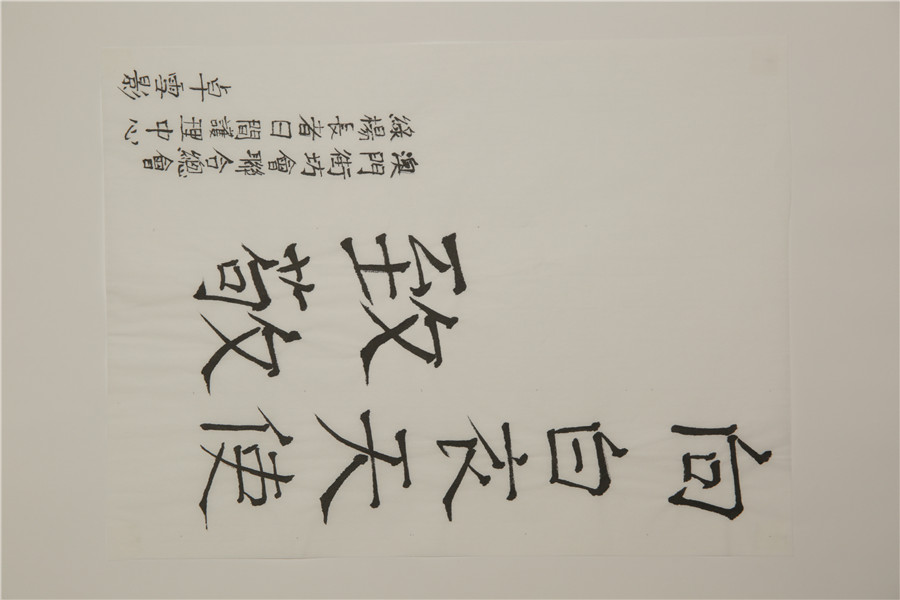 向白衣天使
致敬
澳門街坊會聯合總會
綠楊長者日間護理中心
卓雪影